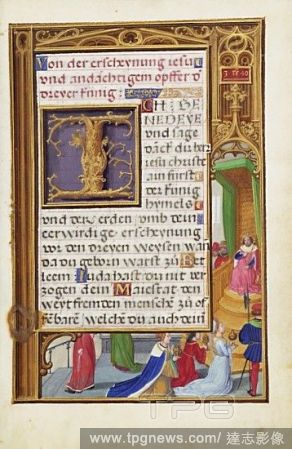 Von der erscheynung iesu
vnd andachtigem opffer d
dreyer künig:
3 re 10
ICH BE
NEDEYE
vnd sage
danck dir her
iesu christe
ain fürst
der künig
hymels
vnd der erden vmb dein
eerwirdige erscheynung
vor den dreyen weysen wan
da du geborn warst zu Bet
leem Juda hast du nit ver
zogen dein Maiestat den
weyt fremden mensche zü of
fēbarē welche du auch dein
TPG
www.tpgnews.com / 達志影像